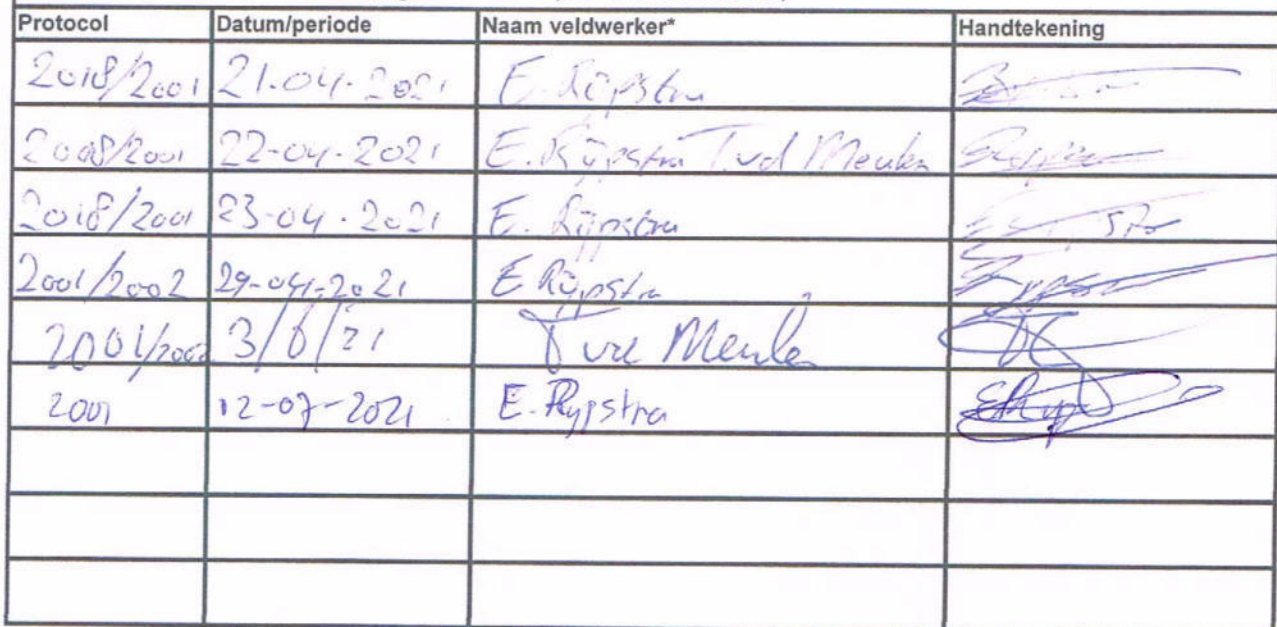 Protocol Datum/periode Naam veldwerker* Handtekening
2018/2001 21-04-2021 E. Rijpstra
2018/2001 22-04-2021 E. Rijpstra T vd Meulen
2018/2001 23-04-2021 E. Rijpstra
2001/2002 29-04-2021 E Rijpstra
2001/2002 3/6/21 T vd Meulen
2001 12-07-2021 E. Rypstra